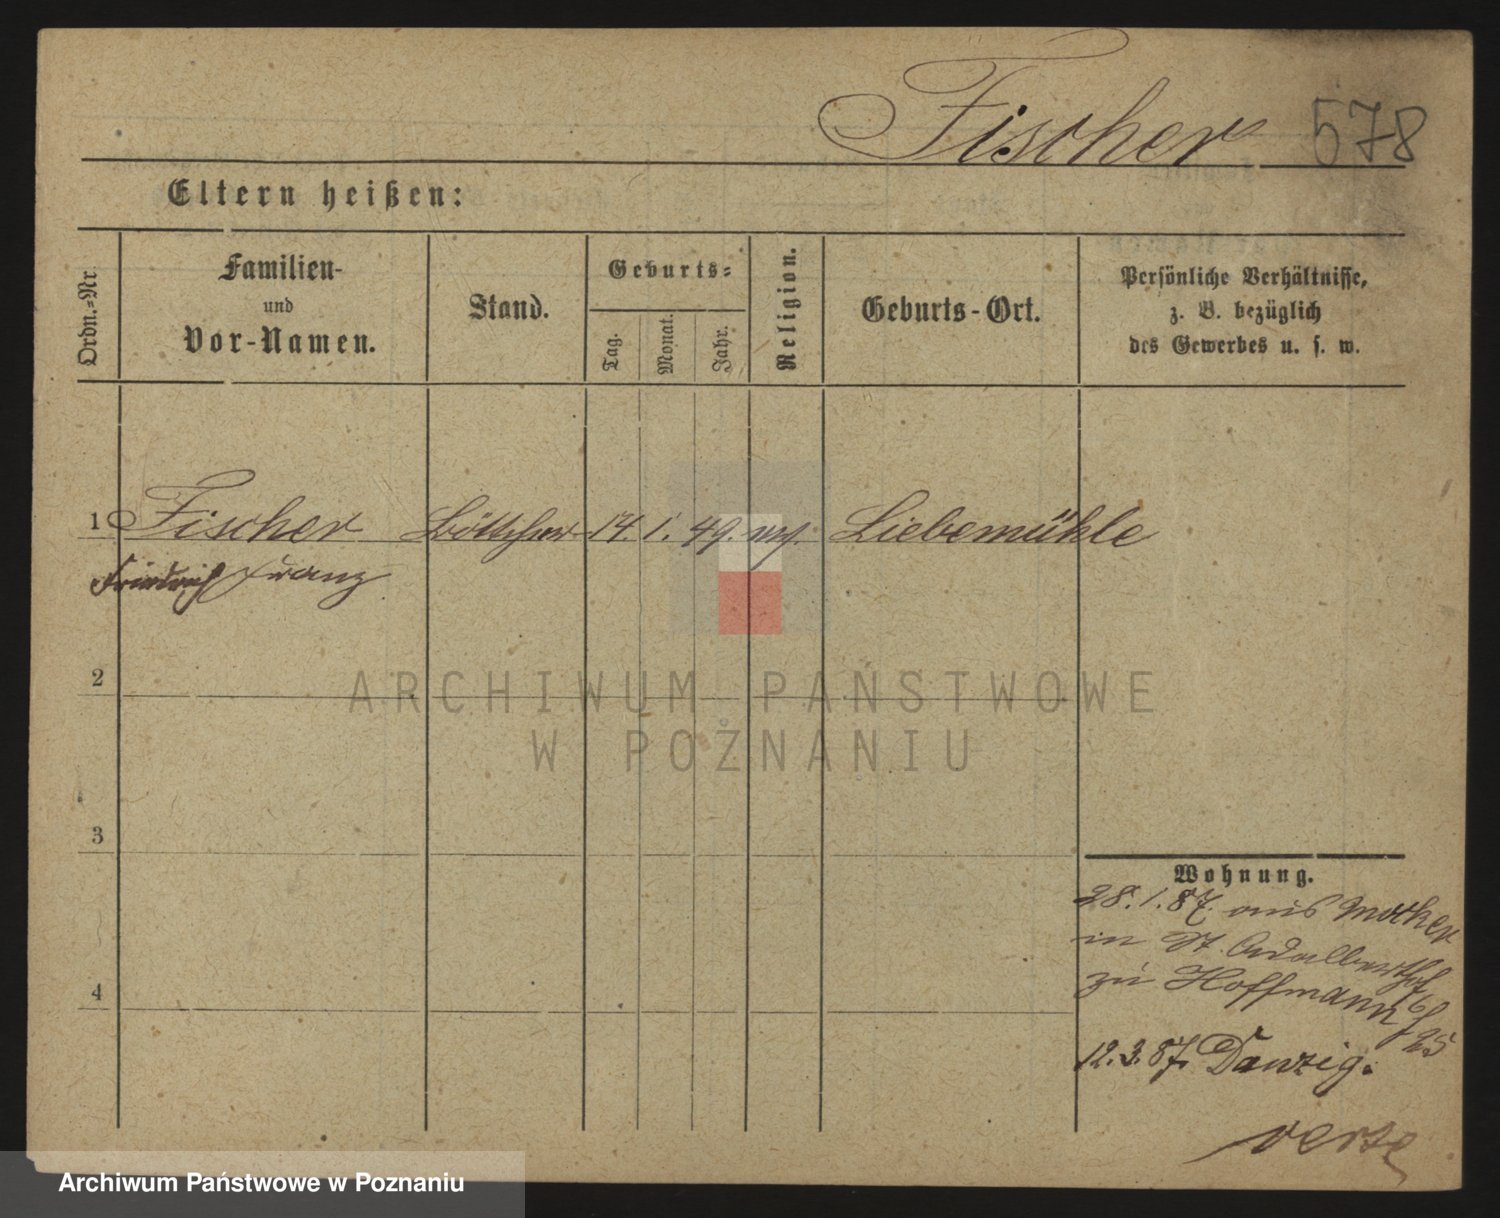 Fischer 578
Eltern heißen:
Ordn.=Nr.
Familien-
und
Vor-Namen.
Stand.
Geburts=
Tag.
Monat.
Jahr.
Religion.
Geburts-Ort.
Persönliche Verhältnisse,
z. B. bezüglich
des Gewerbes u. s. w.
1 Fischer Böttcher 14. 1. 49. Liebemühle
Friedrich Franz
2
ARCHIWUM PAŃSTWOWE
W POZNANIU
3
4
Wohnung.
28.1.87. aus
in St. Adalberthof
zu Hoffmann
12.3.87. Danzig.
Archiwum Państwowe w Poznaniu